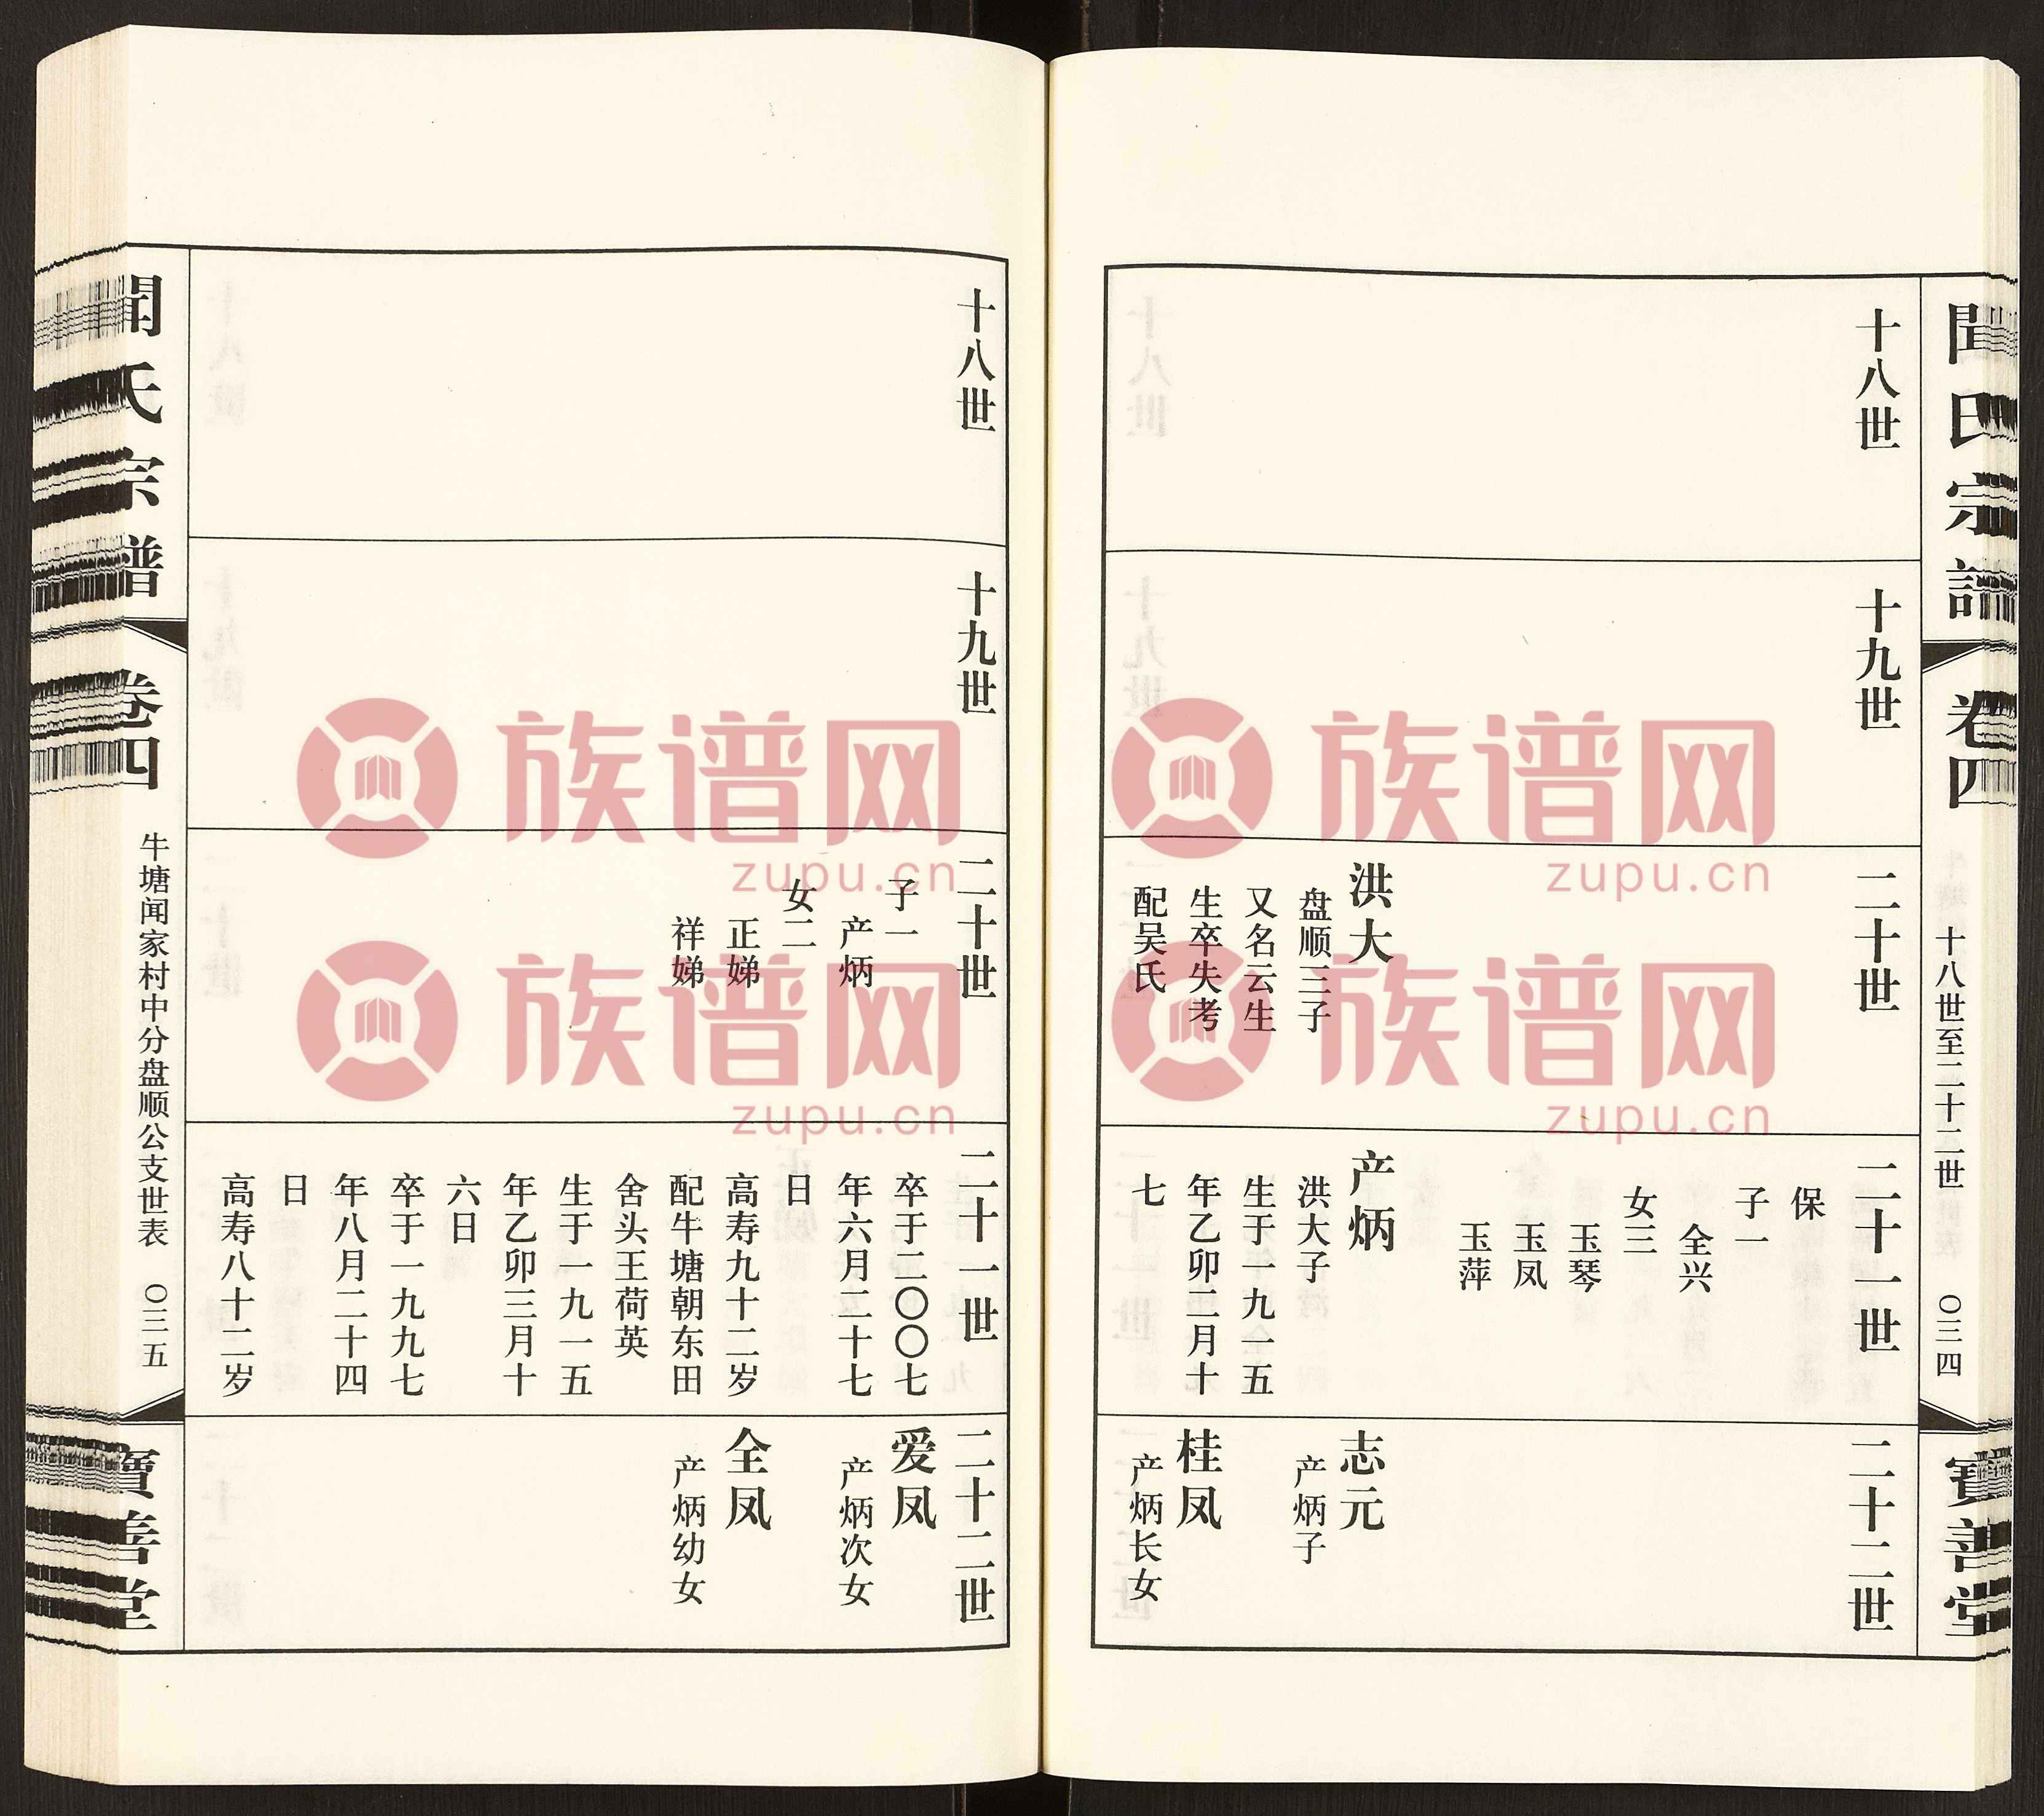 聞氏宗譜
卷四
十八世至二十二世
〇三四
寶善堂
十八世
十九世
二十世
洪大
盘顺三子
又名云生
生卒失考
配吴氏
二十一世
保
子一
全兴
女三
玉琴
玉凤
玉萍
产炳
洪大子
生于一九一五
年乙卯二月十
七
二十二世
志元
产炳子
桂凤
产炳长女
十八世
十九世
二十世
子一
产炳
女二
正娣
祥娣
二十一世
卒于二〇〇七
年六月二十七
日
高寿九十二岁
配牛塘朝东田
舍头王荷英
生于一九一五
年乙卯三月十
六日
卒于一九九七
年八月二十四
日
高寿八十二岁
二十二世
爱凤
产炳次女
全凤
产炳幼女
聞氏宗譜
卷四
牛塘闻家村中分盘顺公支世表
〇三五
寶善堂
族谱网
zupu.cn
族谱网
zupu.cn
族谱网
zupu.cn
族谱网
zupu.cn